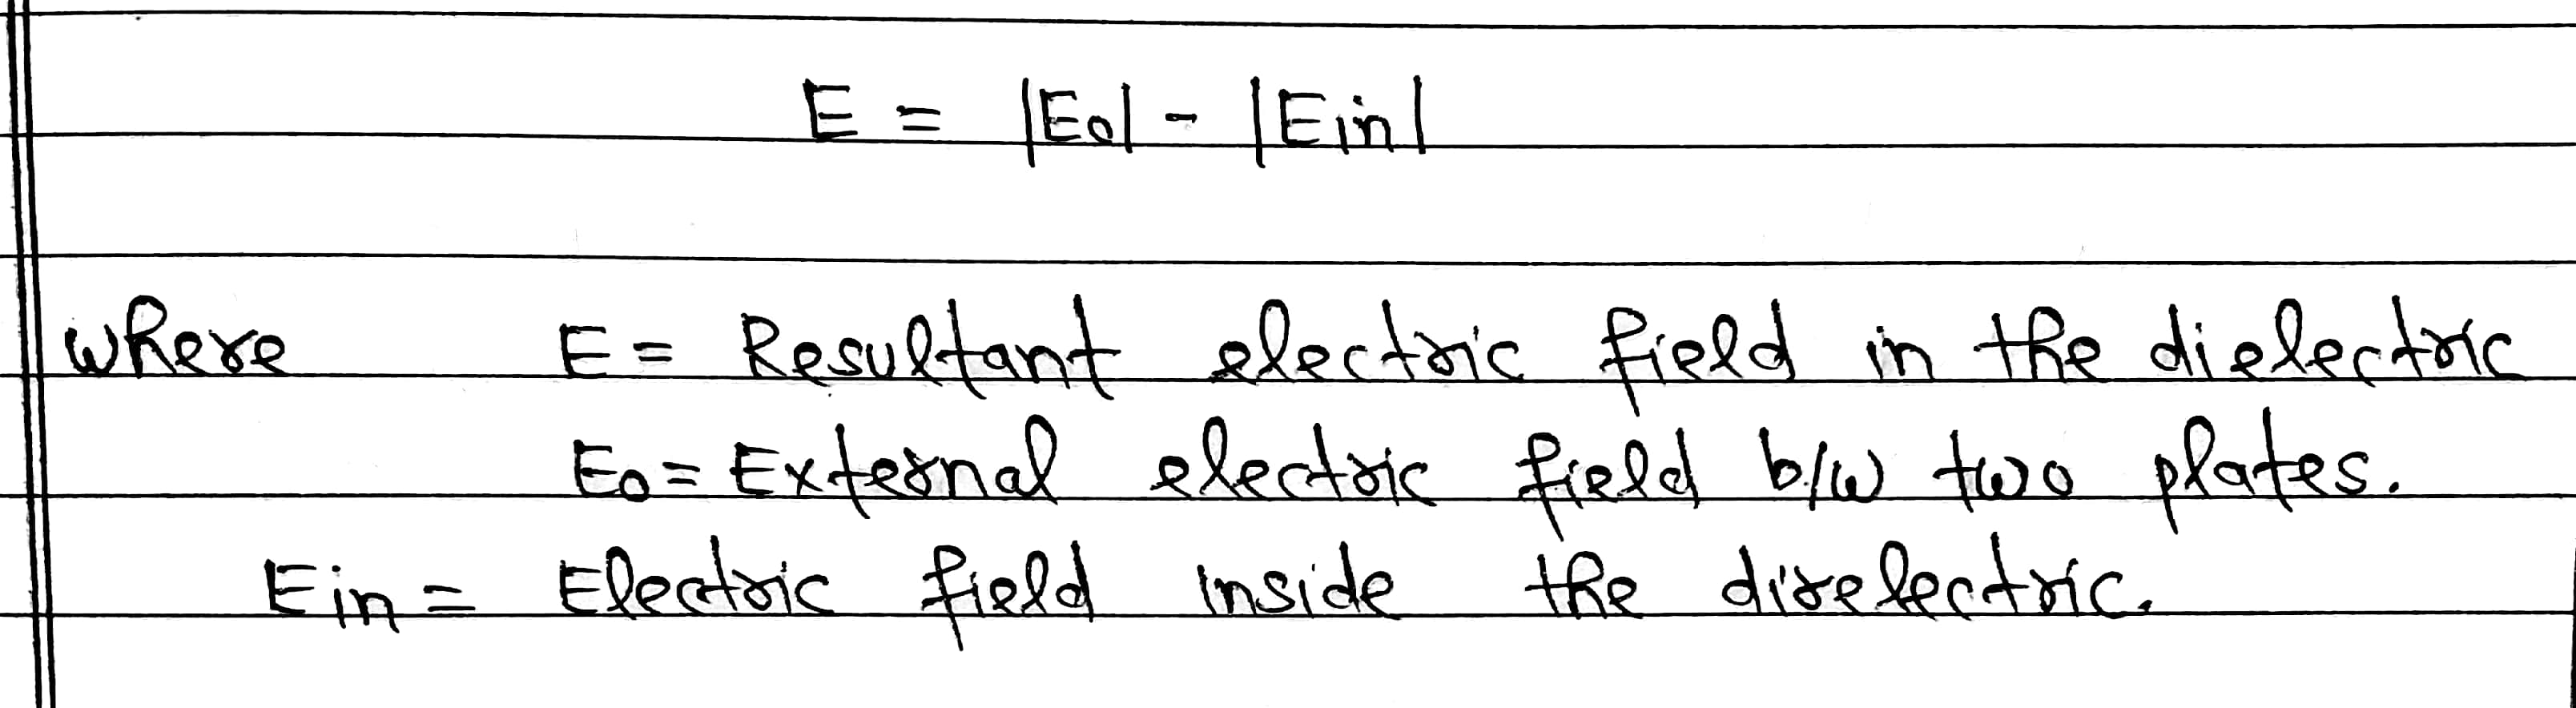 E = |E0| - |Ein|
where E = Resultant electric field in the dielectric
E0 = External electric field b/w two plates.
Ein = Electric field inside the direlectric.